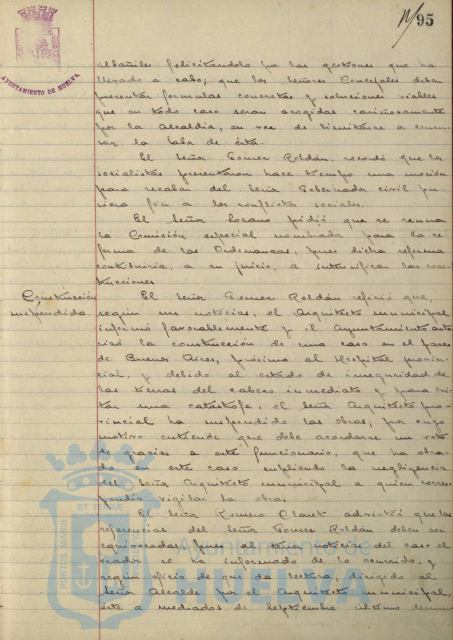 95
AYUNTAMIENTO DE HUELVA
albañiles felicitandolo por las gestiones que ha
llevado a cabo; que los señores Concejales deben
presentar formulas concretas y soluciones viables
que en todo caso seran acogidas cariñosamente
por la Alcaldia, en vez de limitarse a censu-
rar la labor de ésta.
El Señor Gomez Roldán, recordó que los
socialistas presentaron hace tiempo una moción
para recabar del Señor Gobernador civil pu-
siera fin a los conflictos sociales.
El Señor Lozano pidió que se reuna
la Comisión especial nombrada para la re-
forma de las Ordenanzas, pues dicha reforma
contribuiria, a su juicio, a intensificar las cons-
trucciones
Construcción
suspendida
El Señor Gomez Roldán refirió que,
según sus noticias, el Arquitecto municipal
informó favorablemente y el Ayuntamiento auto-
rizó la construcción de una casa en el paseo
de Buenos Aires, próxima al Hospital provin-
cial, y debido al estado de inseguridad de
las tierras del cabezo inmediato y para evi-
tar una catastrofe, el señor Arquitecto pro-
vincial ha suspendido las obras; por cuyo
motivo entiende que debe acordarse un voto
de gracias a este funcionario, que ha obra-
do en este caso supliendo la negligencia
del Señor Arquitecto municipal a quien corres-
pondia vigilar la obra.
El Señor Romero Claret advirtió que las
referencias del Señor Gomez Roldán deben ser
equivocadas pues al tener noticias del caso el
orador se ha informado de lo ocurrido, y
según oficio de que da lectura, dirigido al
Señor Alcalde por el Arquitecto municipal,
éste a mediados de Septiembre último denun
PORTUS MARIS ET TERRAE CUSTODIA
Ayuntamiento de
HUELVA